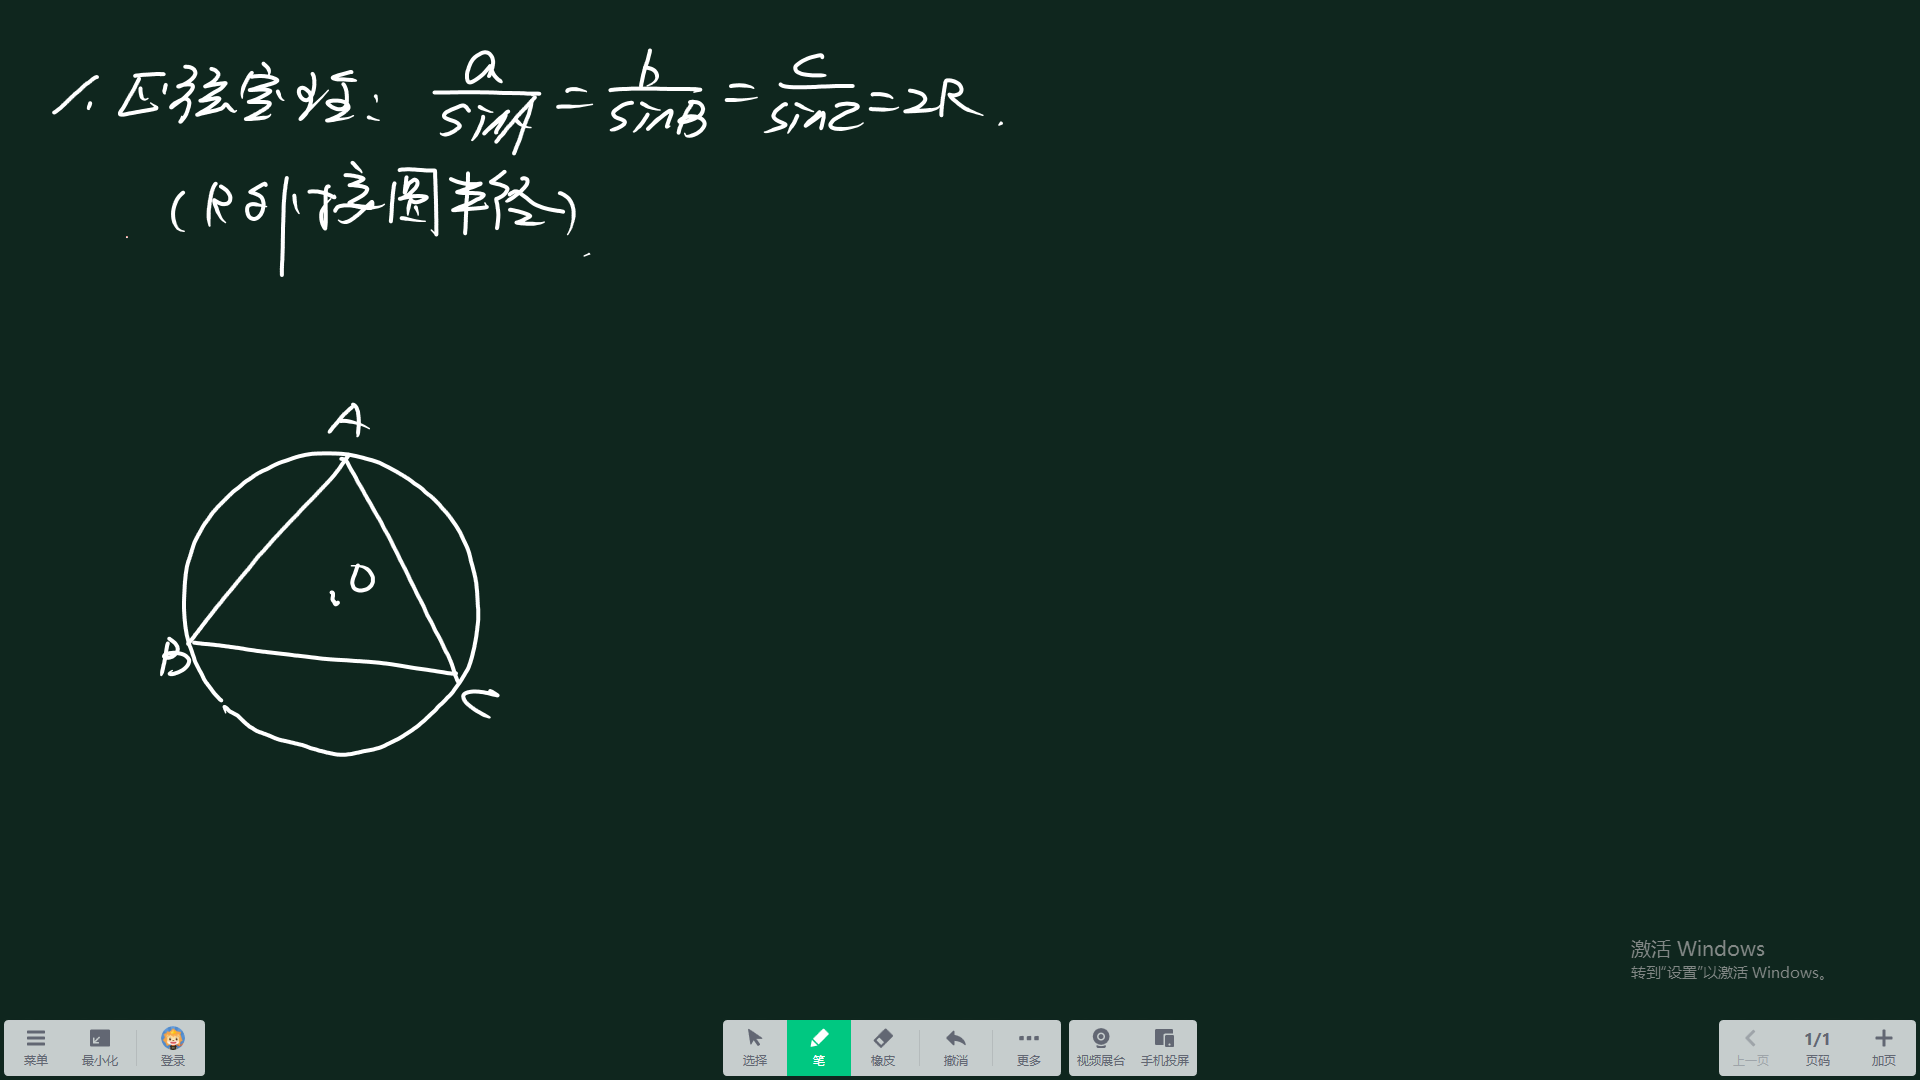 1. 正弦定理: a/sinA = b/sinB = c/sinC = 2R.
(R为外接圆半径)
A
O
B
C
激活 Windows
转到“设置”以激活 Windows。
菜单 最小化 登录 选择 笔 橡皮 撤消 更多 视频展台 手机投屏 上一页 1/1 页码 加页